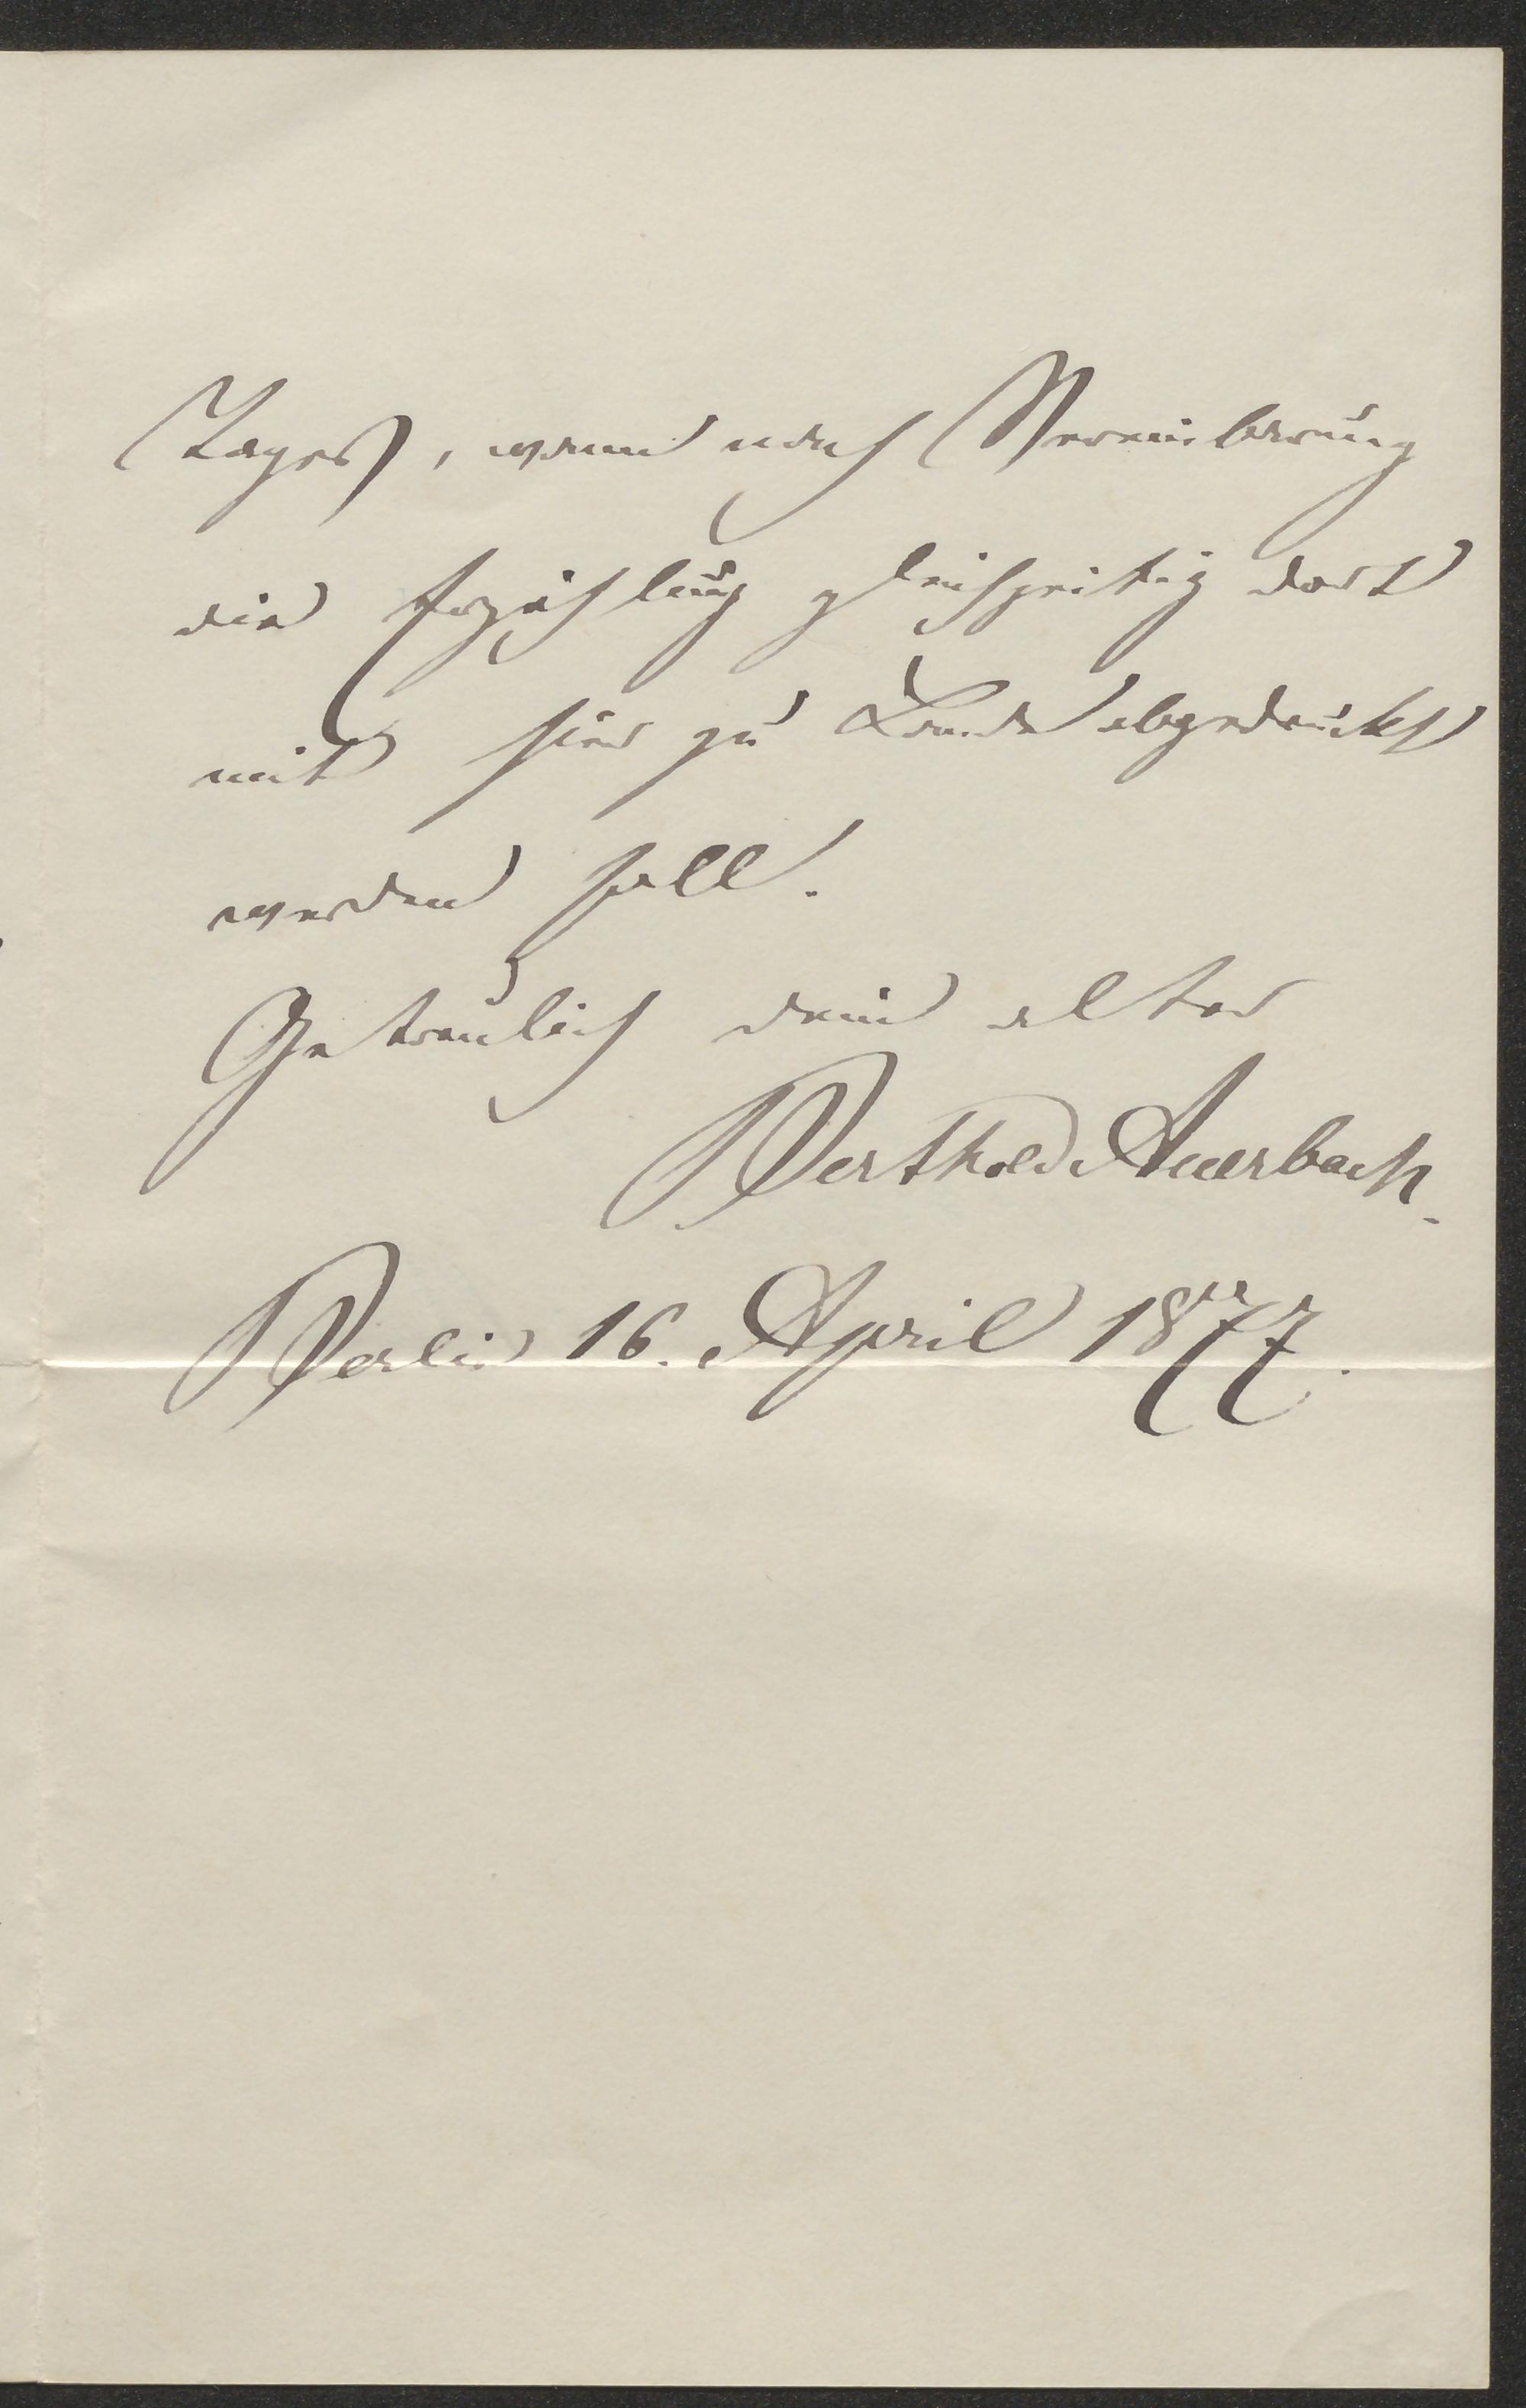 Tages, wann nach Vereinbarung
die Erzählung gleichzeitig dort
mit hier zu Lande abgedruckt
werden soll.
Getreulich dein alter
Berthold Auerbach.
Berlin 16. April 1877.